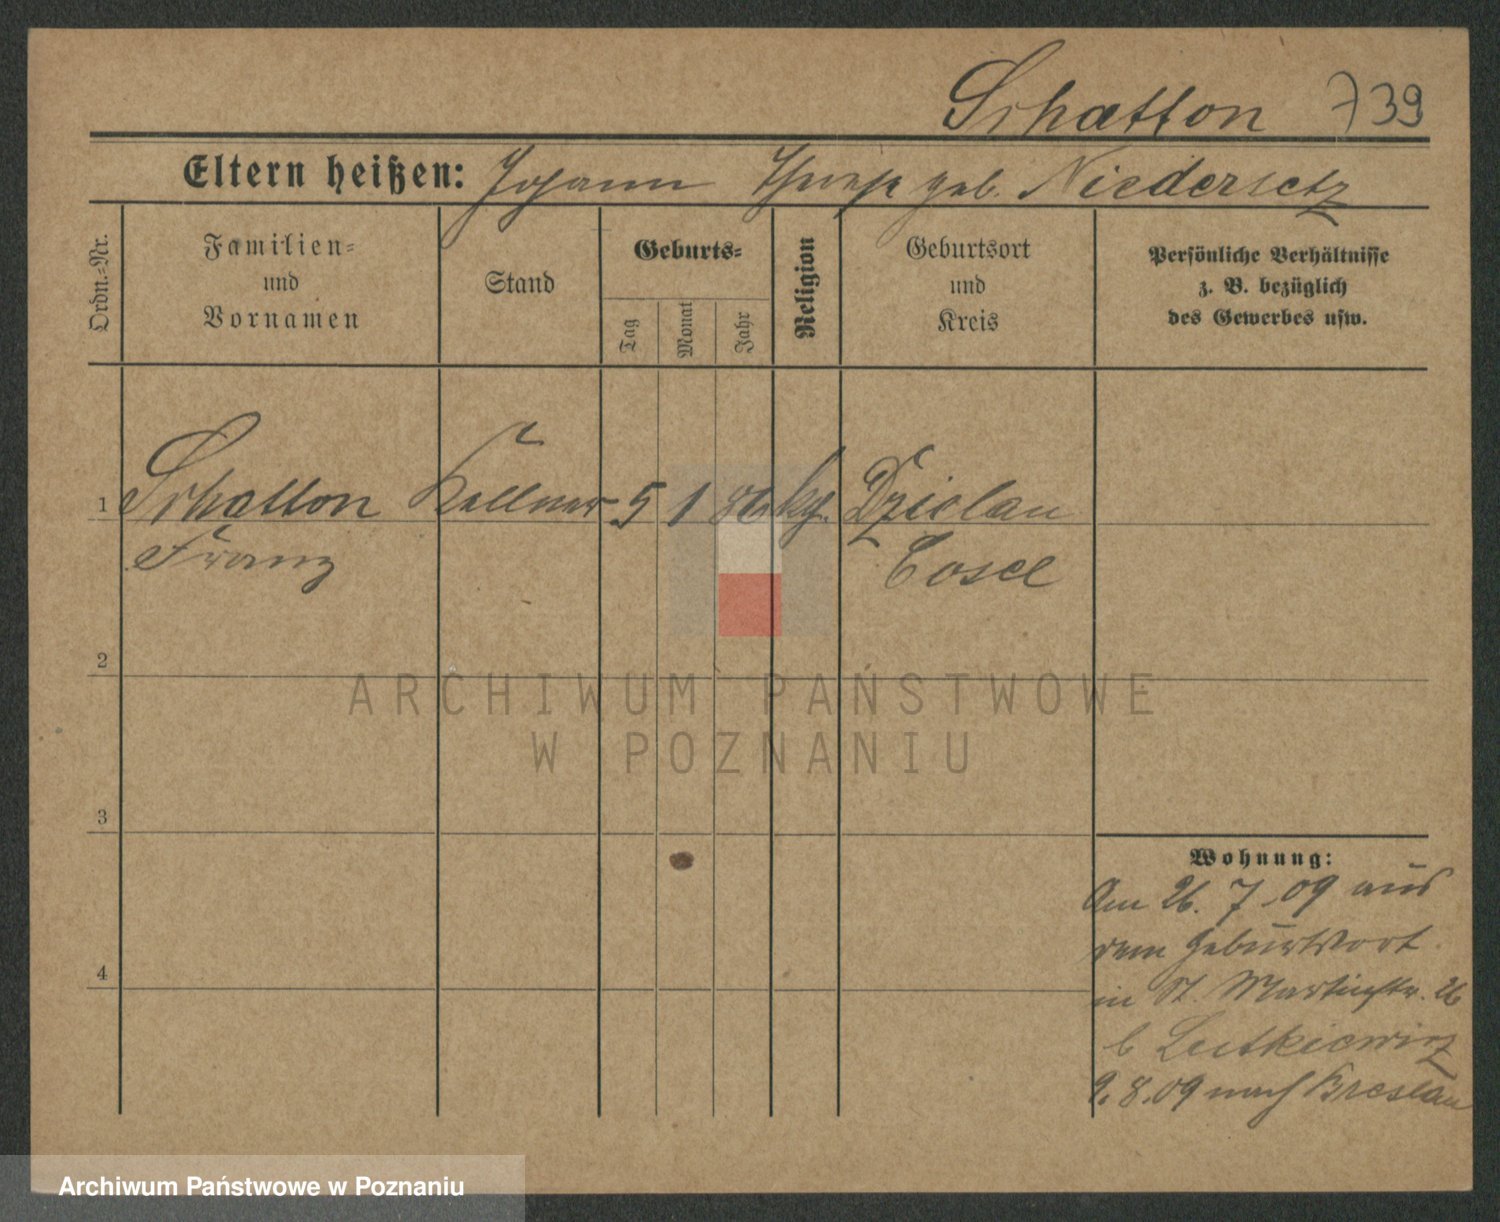 Schatton 739
Eltern heißen: Johann Therese geb. Niedersetz
Ordn.-Nr.
Familien-
und
Vornamen
Stand
Geburts-
Tag
Monat
Jahr
Religion
Geburtsort
und
Kreis
Persönliche Verhältnisse
z. B. bezüglich
des Gewerbes usw.
1 Schatton Kellner 5 1 86 kg. Dzielau
Franz Cosel
2
3
4
Wohnung:
Am 26. 7. 09 aus
dem Geburtsort
in St. Martinstr. 26
b Lutkiewicz
9. 8. 09 nach Breslau
ARCHIWUM PAŃSTWOWE
W POZNANIU
Archiwum Państwowe w Poznaniu